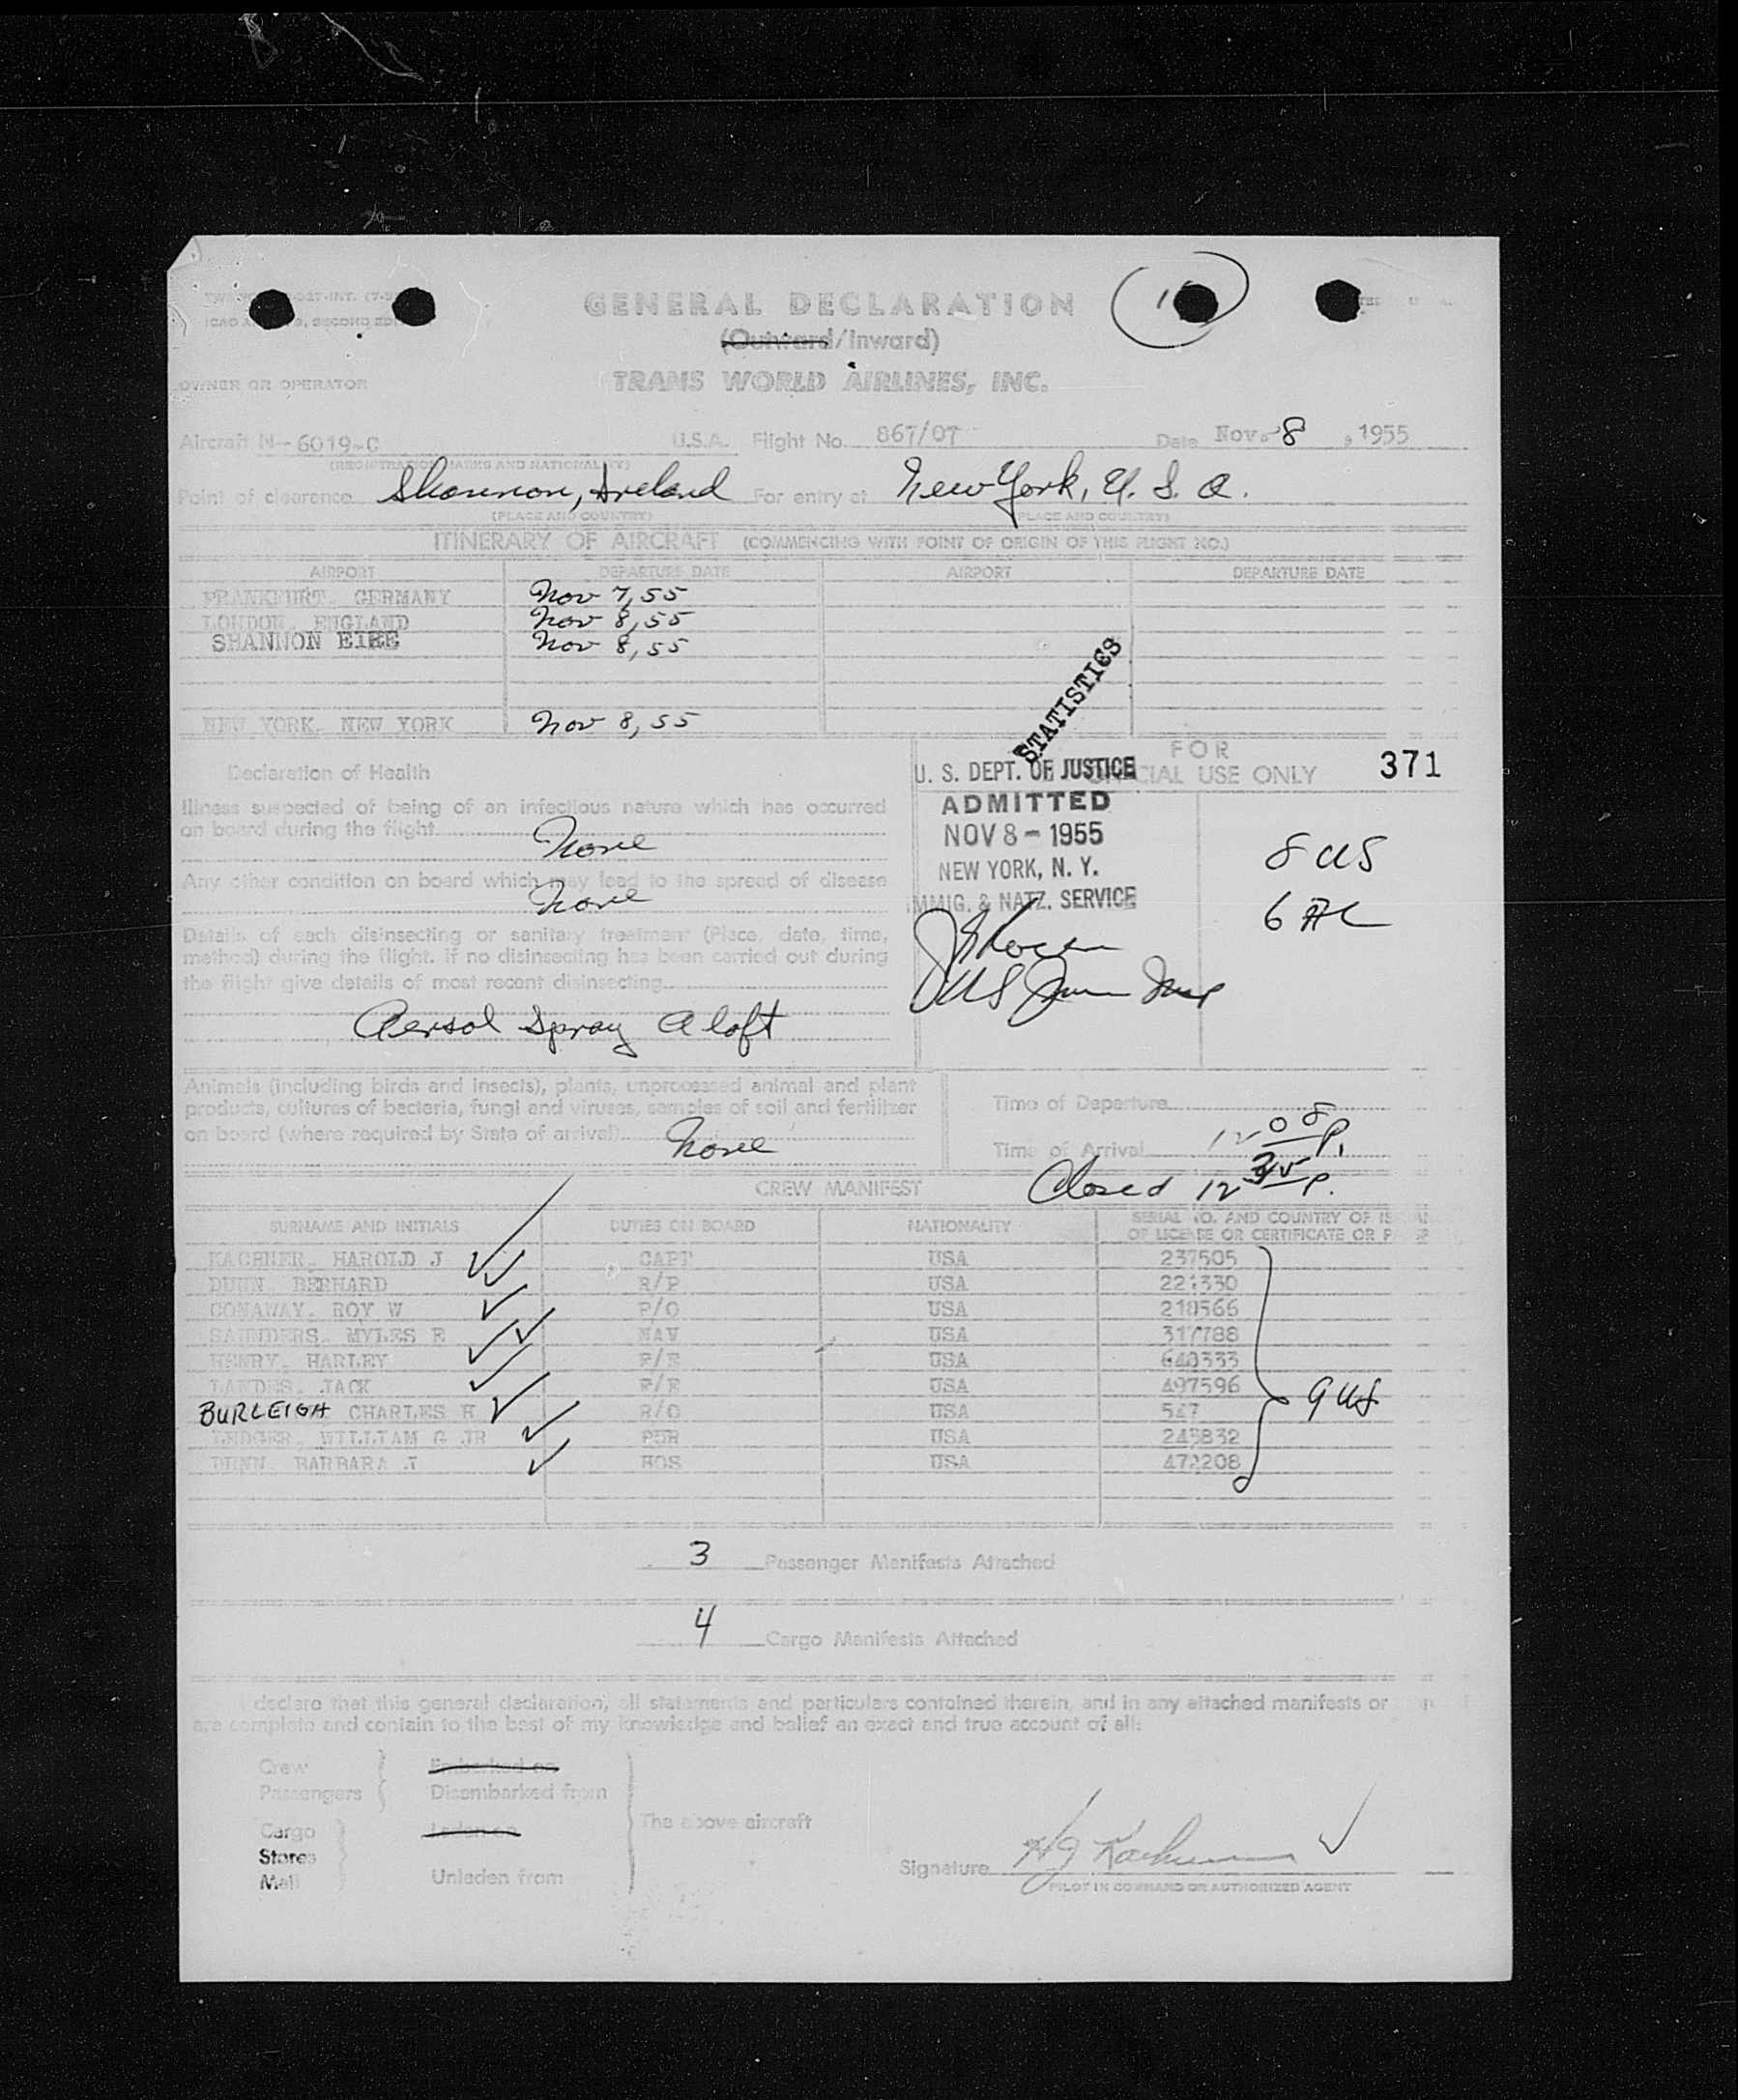 GENERAL DECLARATION
(Outward/Inward)
OWNER OR OPERATOR TRANS WORLD AIRLINES, INC.
Aircraft N-6019-C U.S.A. Flight No. 867/07 Date Nov. 8, 1955
(REGISTRATION MARKS AND NATIONALITY)
Point of clearance Shannon, Ireland For entry at New York, U. S. A.
(PLACE AND COUNTRY) (PLACE AND COUNTRY)
ITINERARY OF AIRCRAFT (COMMENCING WITH POINT OF ORIGIN OF THIS FLIGHT NO.)
AIRPORT DEPARTURE DATE AIRPORT DEPARTURE DATE
FRANKFURT, GERMANY Nov 7, 55
LONDON, ENGLAND Nov 8, 55
SHANNON EIRE Nov 8, 55
NEW YORK, NEW YORK Nov 8, 55
STATISTICS
FOR
OFFICIAL USE ONLY 371
U. S. DEPT. OF JUSTICE
ADMITTED
NOV 8 - 1955
NEW YORK, N. Y.
IMMIG. & NATZ. SERVICE
8 US
Declaration of Health
Illness suspected of being of an infectious nature which has occurred
on board during the flight
None
Any other condition on board which may lead to the spread of disease
None
Details of each disinsecting or sanitary treatment (Place, date, time,
method) during the flight. If no disinsecting has been carried out during
the flight give details of most recent disinsecting
Aersol Spray Aloft
Animals (including birds and insects), plants, unprocessed animal and plant
products, cultures of bacteria, fungi and viruses, samples of soil and fertilizer
on board (where required by State of arrival) None
Time of Departure
Time of Arrival 12 08 P.
Closed 12 P.
CREW MANIFEST
SURNAME AND INITIALS DUTIES ON BOARD NATIONALITY SERIAL NO. AND COUNTRY OF
OF LICENSE OR CERTIFICATE OR
KACHNER, HAROLD J CAPT USA 237505
DUNN, BERHARD R/P USA 221330
CONAWAY, ROY W F/O USA 218566
SAUNDERS, MYLES E NAV USA 317788
HENRY, HARLEY F/E USA 640333
LANDES, JACK F/E USA 497596
BURLEIGH CHARLES H R/O USA 547
LEDGER, WILLIAM G JR PUR USA 245832
DUNN, BARBARA J HOS USA 472208
9 US
3 Passenger Manifests Attached
4 Cargo Manifests Attached
declare that this general declaration, all statements and particulars contained therein, and in any attached manifests or
are complete and contain to the best of my knowledge and belief an exact and true account of all:
Crew Embarked on
Passengers Disembarked from
Cargo Laden on The above aircraft
Stores
Mail Unladen from
Signature H J Kachner
PILOT IN COMMAND OR AUTHORIZED AGENT